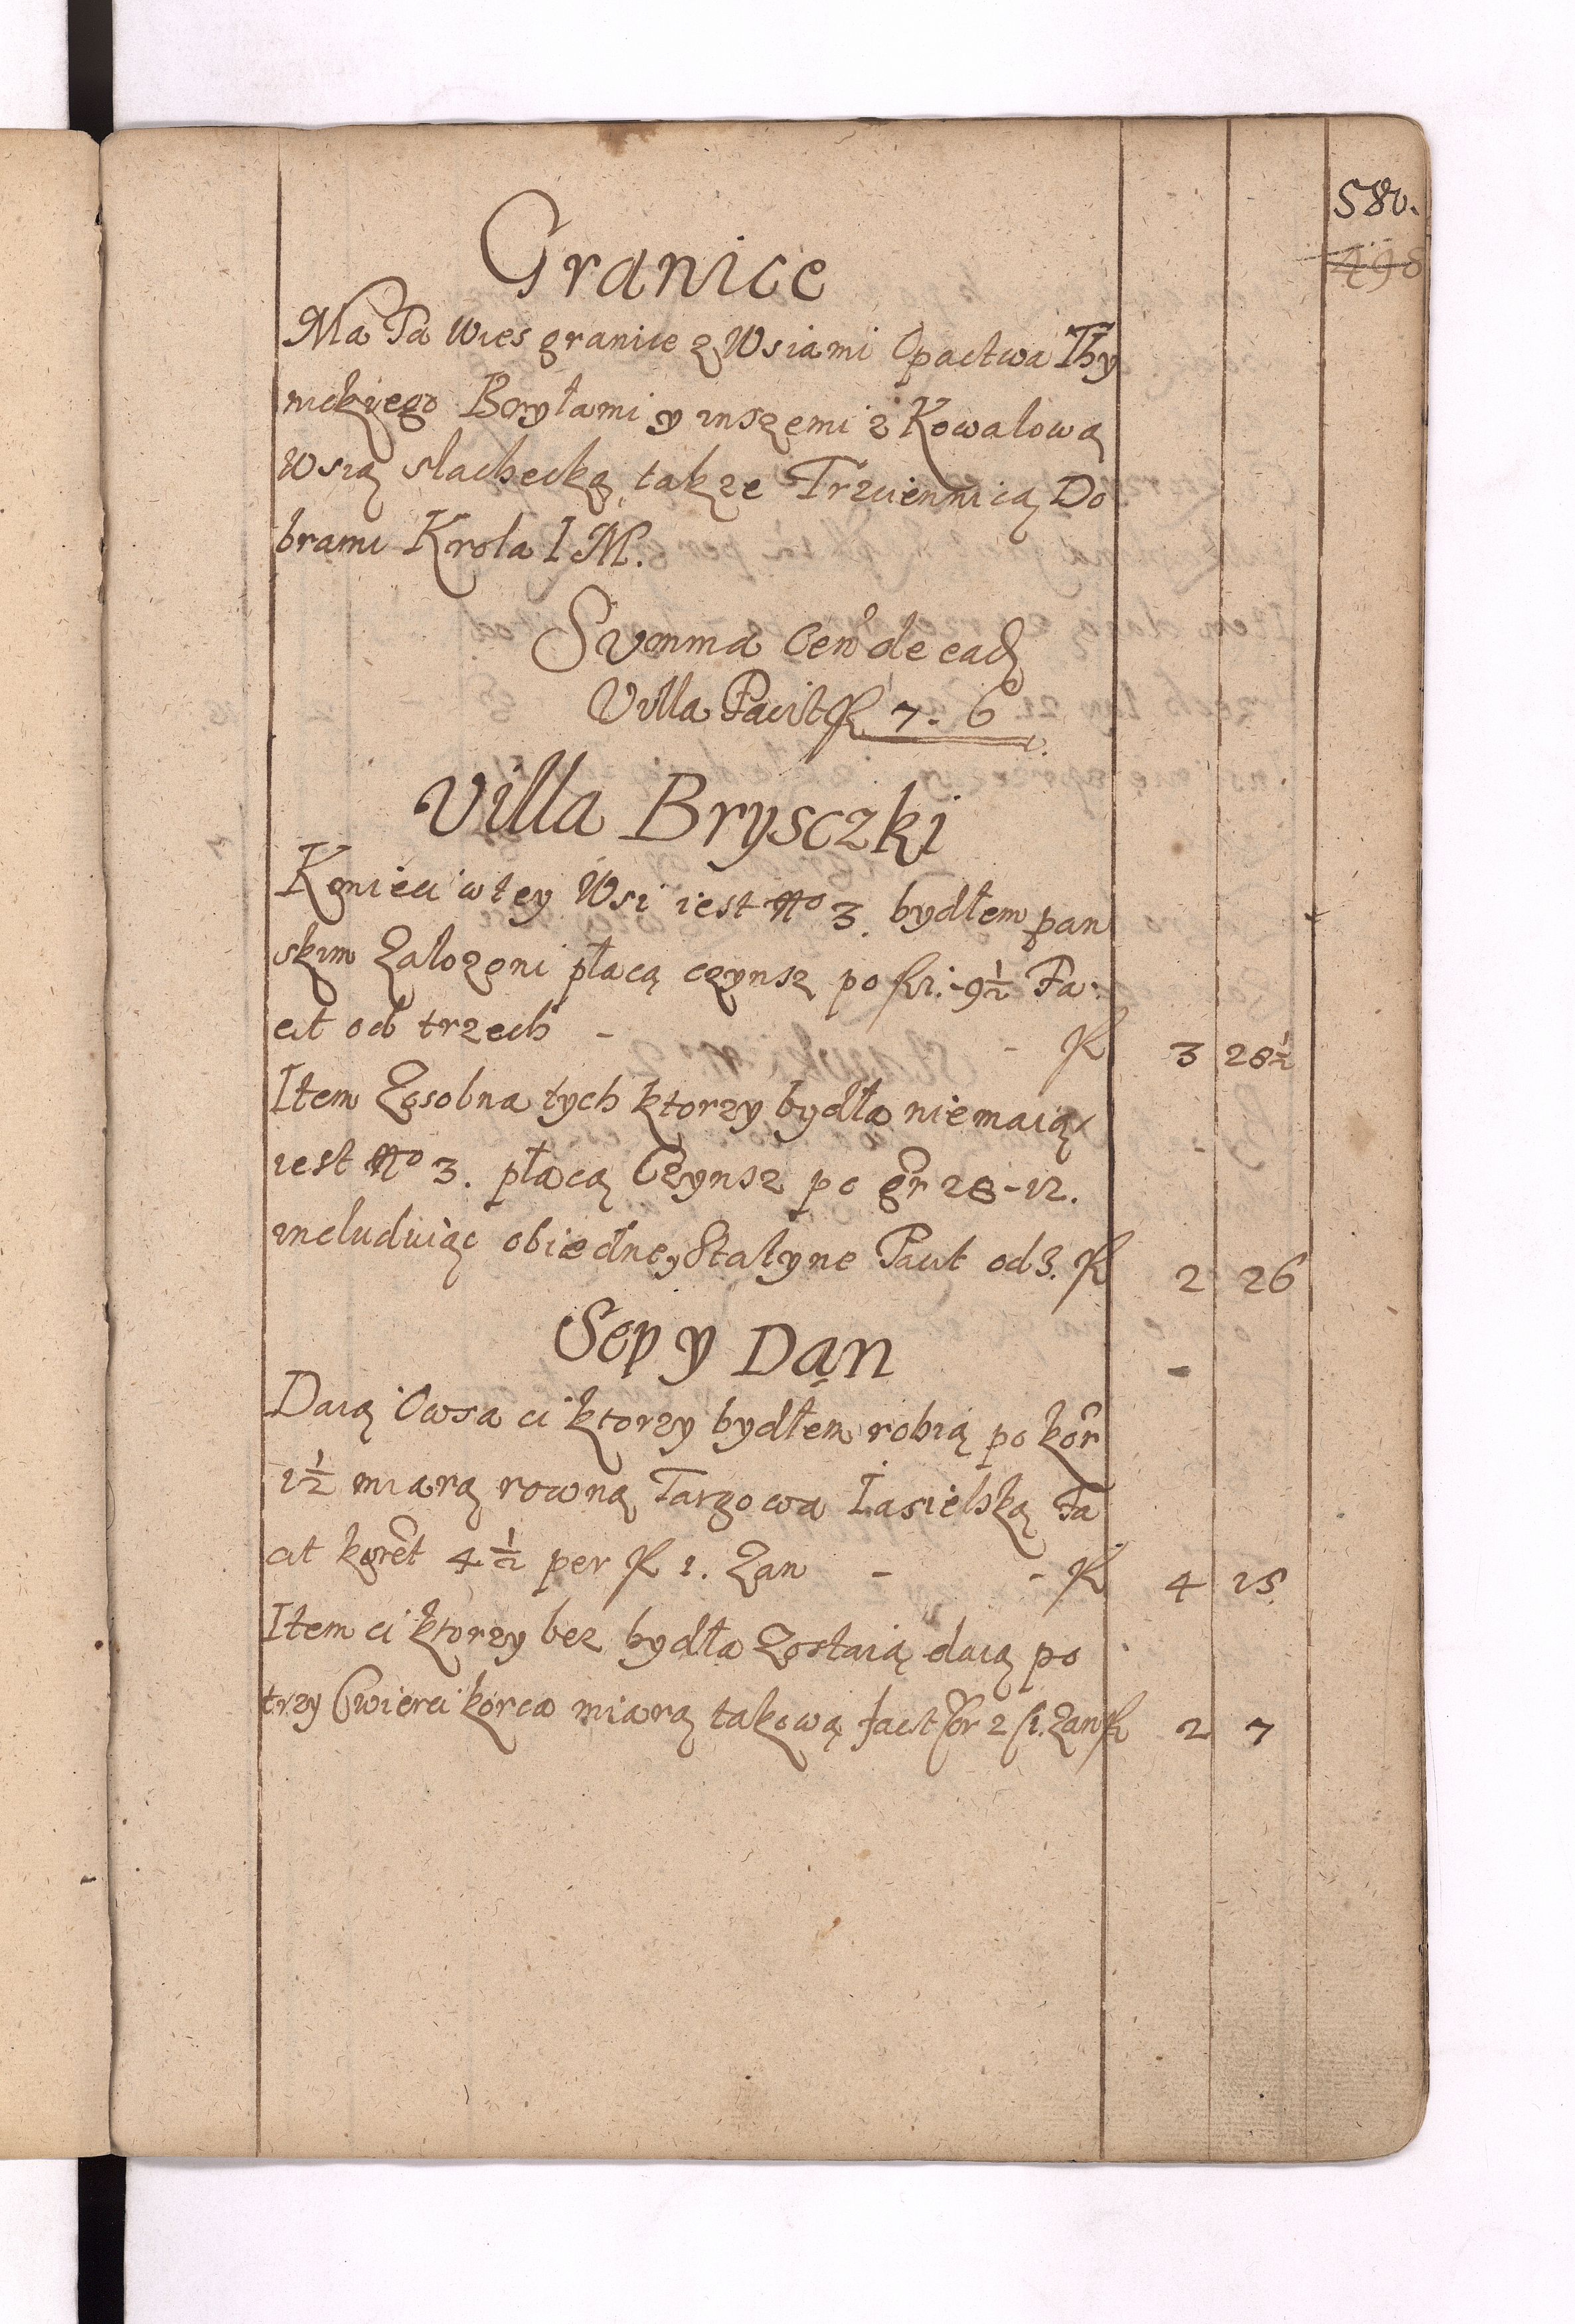 580.
498
Granice
Ma Ta Wies granice z Wsiami Opactwa Thy
nickiego Bryłami y inszemi z Kowalową
Wsią slachecką, takze Trzciennicą Do
brami Krola I M.
Summa Cen de ead
Villa Facit R 7. 6
Villa Brysczki
Kmieci w tey Wsi iest No 3. bydłem pan
skim Zalozoni płacą czynsz po fl 1.-9½ Fa:
cit od trzech - - R 3 28½
Item Zosobna tych ktorzy bydła niemaią
iest No 3. płacą Czynsz po gr 28-12.
includuiąc obiedne, Stalyne Facit od 3. R 2 26
Sep y Dan
Daią Owsa ci ktorzy bydłem robią po kor
1½ miarą rowną Targowa Iasielską Fa
cit koret 4½ per R 1. Zan - - R 4 15.
Item ci ktorzy bez bydła Zostaią daią po
trzy Cwierci korca miarą takową facit kor 2 f 1. Zan R 2 7